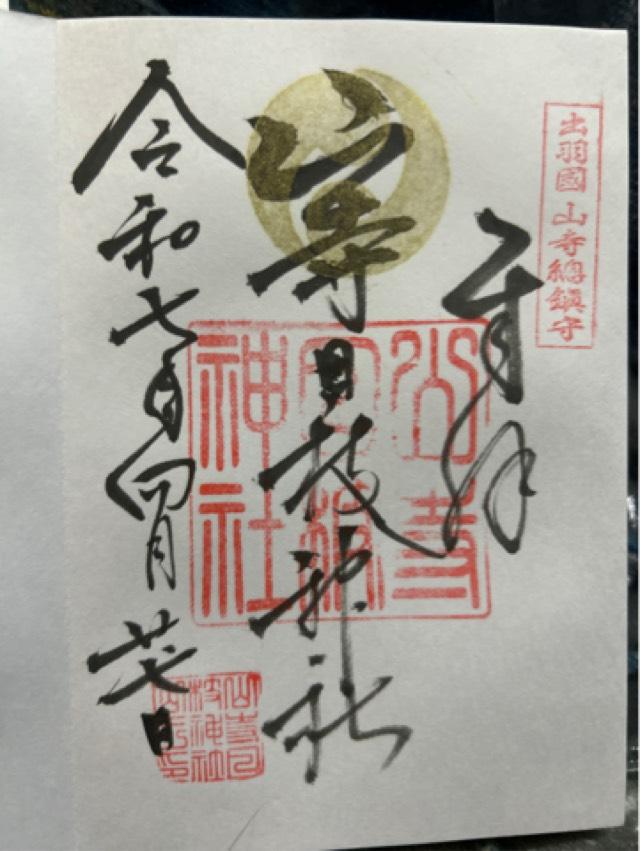 出羽國 山寺總鎮守
奉拝
山寺日枝神社
令和七年四月廿七日
山寺
日枝
神社
山寺日
枝神社